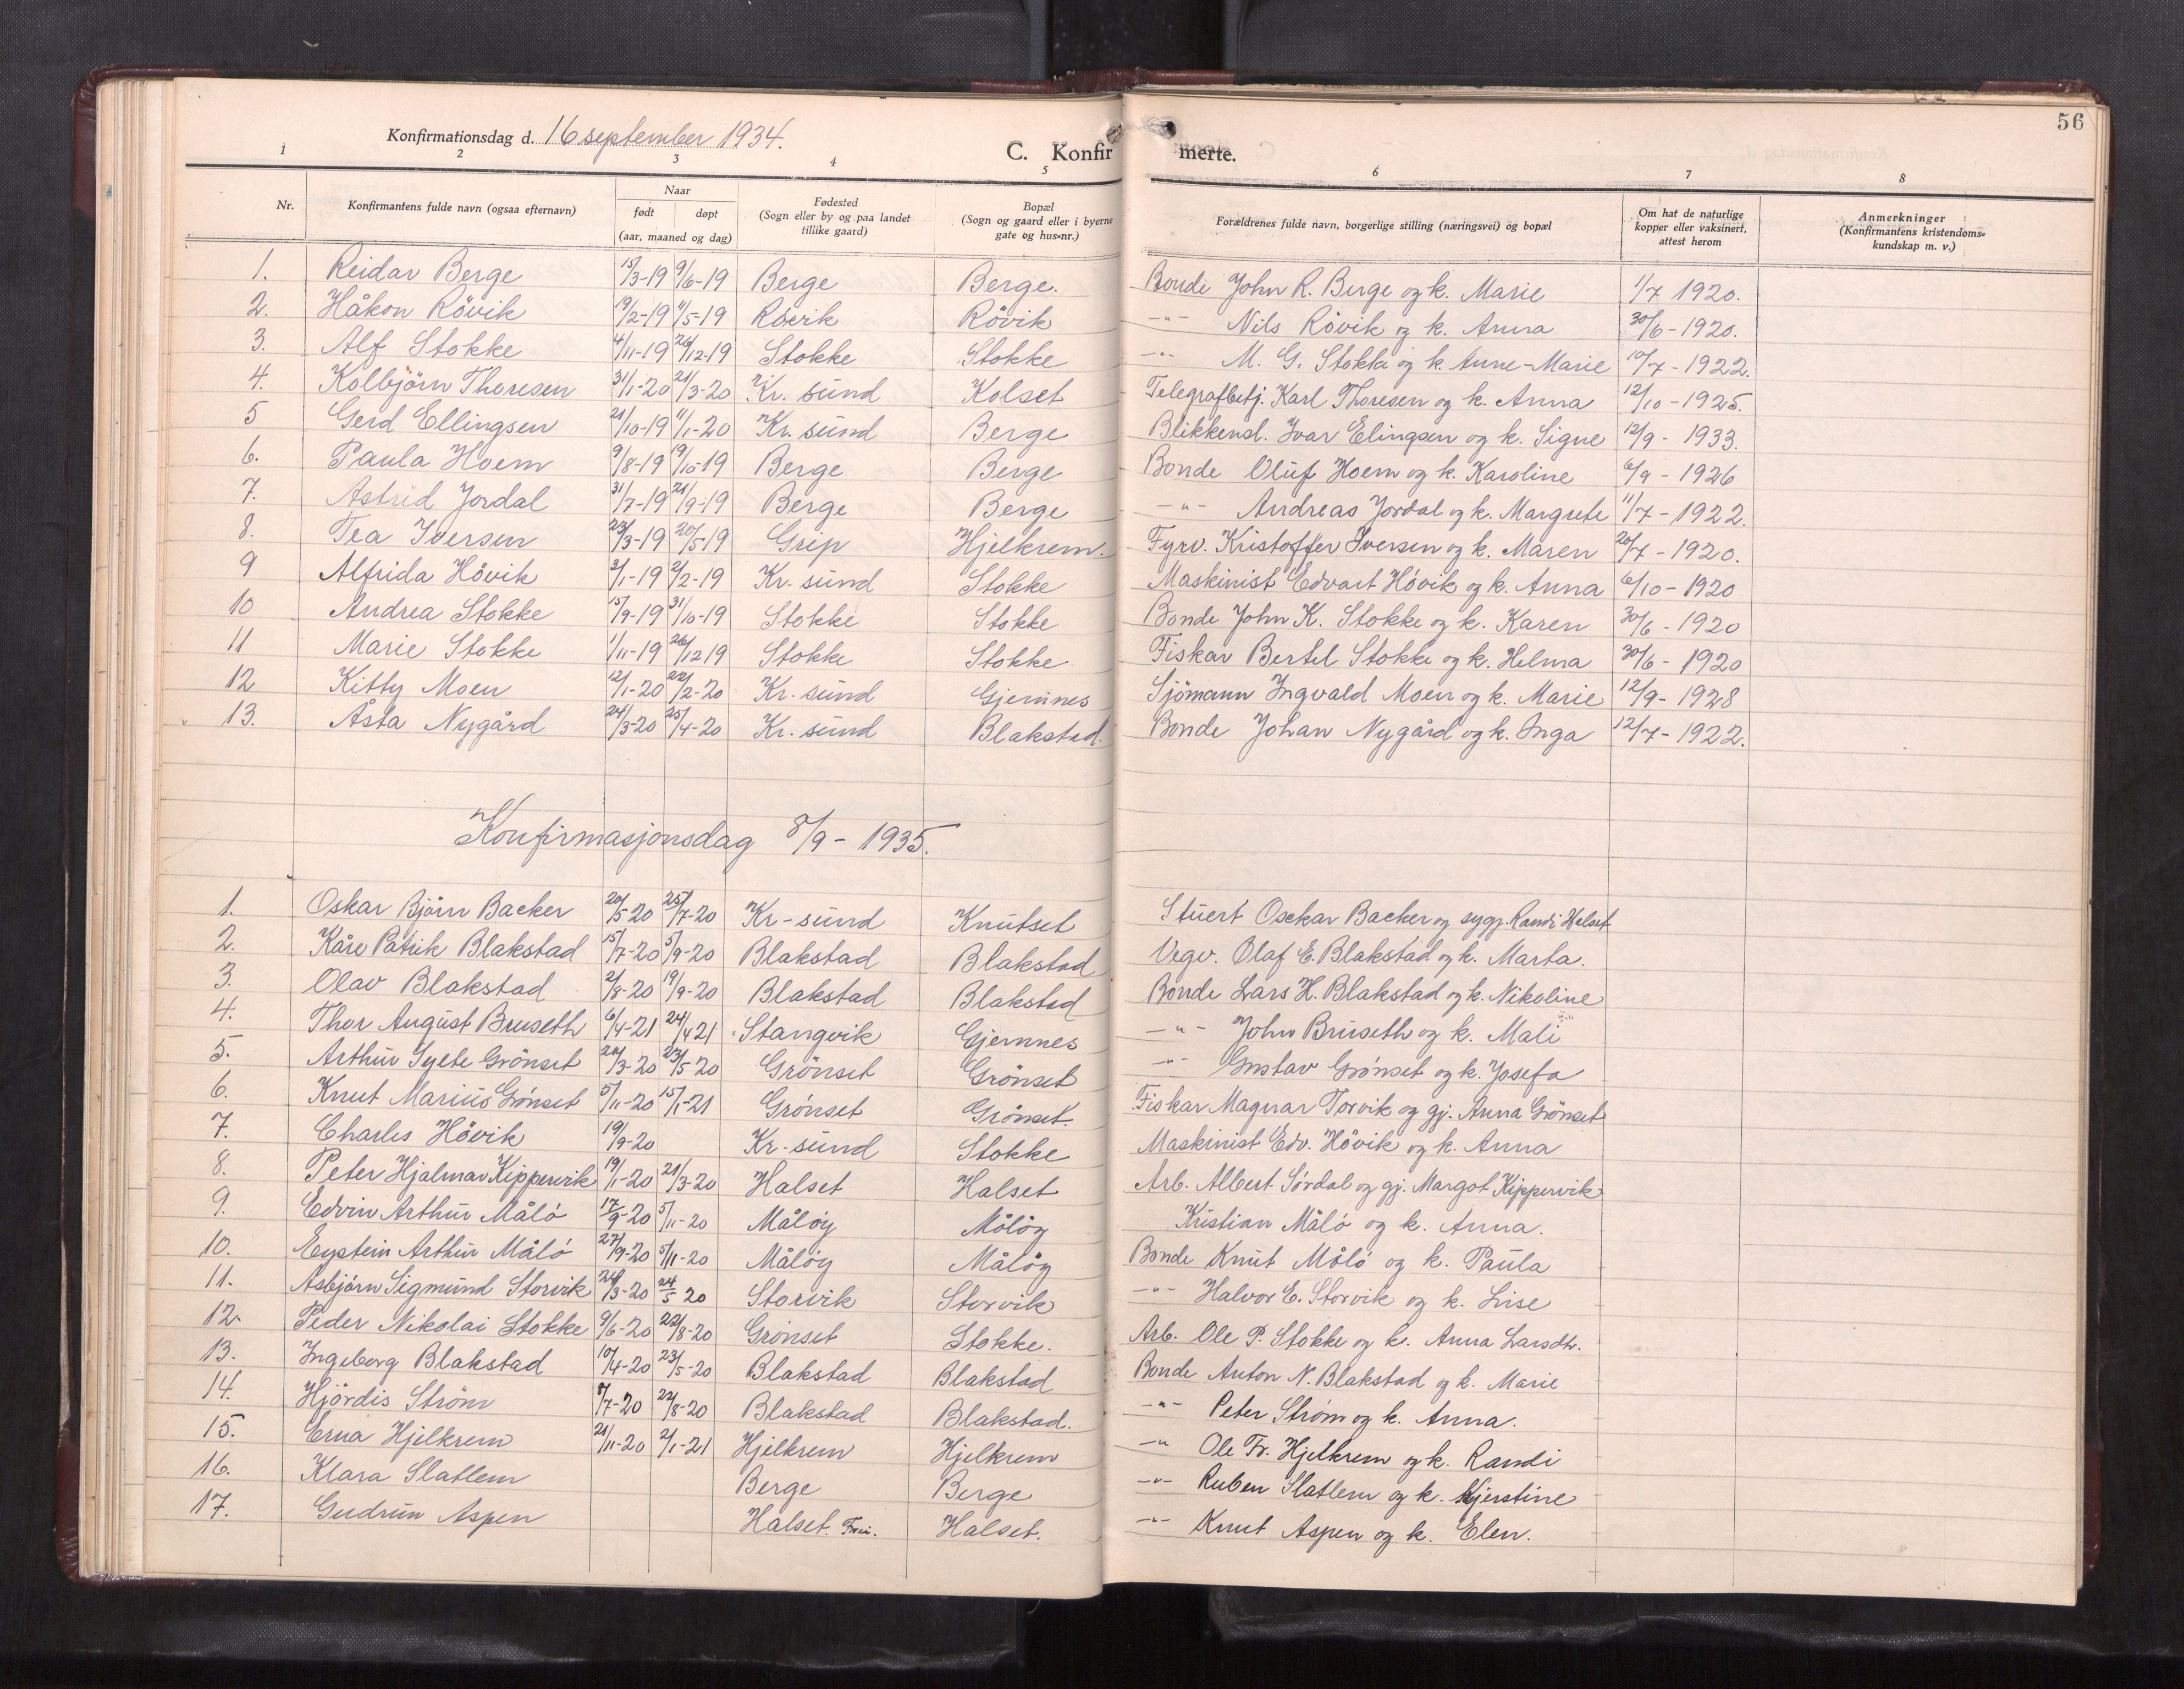 56
Konfirmationsdag d. 16 september 1934.
C. Konfirmerte.
1 2 3 4 5 6 7 8
Nr. | Konfirmantens fulde navn (ogsaa efternavn) | Naar født døpt (aar, maaned og dag) | Fødested (Sogn eller by og paa landet tillike gaard) | Bopæl (Sogn og gaard eller i byerne gate og hus-nr.) | Forældrenes fulde navn, borgerlige stilling (næringsvei) og bopæl | Om hat de naturlige kopper eller vaksinert, attest herom | Anmerkninger (Konfirmantens kristendoms-kundskap m. v.)
1. Reidar Berge 15/3-19 9/6-19 Berge Berge. Bonde John R. Berge og k. Marie 1/7 1920.
2. Håkon Rövik 19/2-19 11/5-19 Rövik Rövik -"- Nils Rövik og k. Anna 30/6-1920.
3. Alf Stokke 4/11-19 26/12-19 Stokke Stokke -"- M. G. Stokke og k. Anne-Marie 10/7-1922.
4. Kolbjörn Thoresen 31/1-20 21/3-20 Kr. sund Kolset Telegrafbetj. Karl Thoresen og k. Anna 12/10-1925.
5 Gerd Ellingsen 21/10-19 11/1-20 Kr. sund Berge Blikkensl. Ivar Elingsen og k. Signe 12/9-1933.
6. Paula Hoem 9/8-19 19/10-19 Berge Berge Bonde Oluf Hoem og k. Karoline 6/9-1926
7. Astrid Jordal 31/7-19 21/9-19 Berge Berge -"- Andreas Jordal og k. Margrete 11/7-1922.
8. Tea Iversen 23/3-19 20/5-19 Grip Hjelkrem. Fyrv. Kristoffer Iversen og k. Maren 20/7-1920.
9 Alfrida Hövik 2/1-19 2/2-19 Kr. sund Stokke Maskinist Edvart Hövik og k. Anna 6/10-1920
10 Andrea Stokke 15/9-19 31/10-19 Stokke Stokke Bonde John K. Stokke og k. Karen 30/6-1920
11 Marie Stokke 1/11-19 26/12 19 Stokke Stokke Fiskar Bertel Stokke og k. Helma 30/6-1920
12 Kitty Moen 12/1-20 22/2-20 Kr. sund Gjemnes Sjömann Ingvald Moen og k. Marie 12/9-1928
13. Åsta Nygård 24/3-20 25/4-20 Kr. sund Blakstad. Bonde Johan Nygård og k. Inga 12/7-1922.
Konfirmasjonsdag 8/9-1935.
1. Oskar Björn Backer 20/5-20 25/7-20 Kr-sund Knutset Stuert Osckar Backer og sygj. Randi Halset
2. Kåre Patrik Blakstad 15/7-20 5/9-20 Blakstad Blakstad Vegv. Olaf E. Blakstad og k. Marta.
3. Olav Blakstad 2/8-20 19/9-20 Blakstad Blakstad Bonde Lars H. Blakstad og k. Nikoline
4. Thor August Bruseth 6/4-21 24/4 21 Stangvik Gjemnes -"- John Bruseth og k. Mali
5. Arthur Grönset 20/3-20 23/5-20 Grönset Grönset -"- Gustav Grönset og k. Josefa
6. Knut Marius Grönset 5/11-20 15/1-21 Grönset Grönset. Fiskar Magnar Torvik og gj. Anna Grönset
7. Charles Hövik 19/9-20 Kr-sund Stokke Maskinist Edv. Hövik og k. Anna
8. Peter Hjalmar Kippervik 19/1-20 21/3-20 Halset Halset Arb. Albert Sørdal og gj. Margot Kippervik
9. Edvin Arthur Målö 17/9-20 5/11-20 Målöy Målöy Kristian Målö og k. Anna.
10. Eystein Arthur Målö 27/9-20 5/11-20 Målöy Målöy Bonde Knut Målö og k. Paula
11. Asbjörn Sigmund Storvik 20/3-20 24/5 20 Storvik Storvik -"- Halvor E. Storvik og k. Lise
12. Peder Nikolai Stokke 9/6-20 22/8-20 Grönset Stokke. Arb. Ole P. Stokke og k. Anna Larsdtr.
13. Ingeborg Blakstad 10/4-20 23/5-20 Blakstad Blakstad Bonde Anton N. Blakstad og k. Marie
14. Hjördis Ström 8/7-20 22/8-20 Blakstad Blakstad. -"- Peter Ström og k. Anna.
15. Erna Hjelkrem 21/11-20 2/1-21 Hjelkrem Hjelkrem -"- Ole Fr. Hjelkrem og k. Randi
16. Klara Slatlem Berge Berge -"- Ruben Slatlem og k. Kjerstine
17. Gudrun Aspen Halset. Frei. Halset. -"- Knut Aspen og k. Elen.